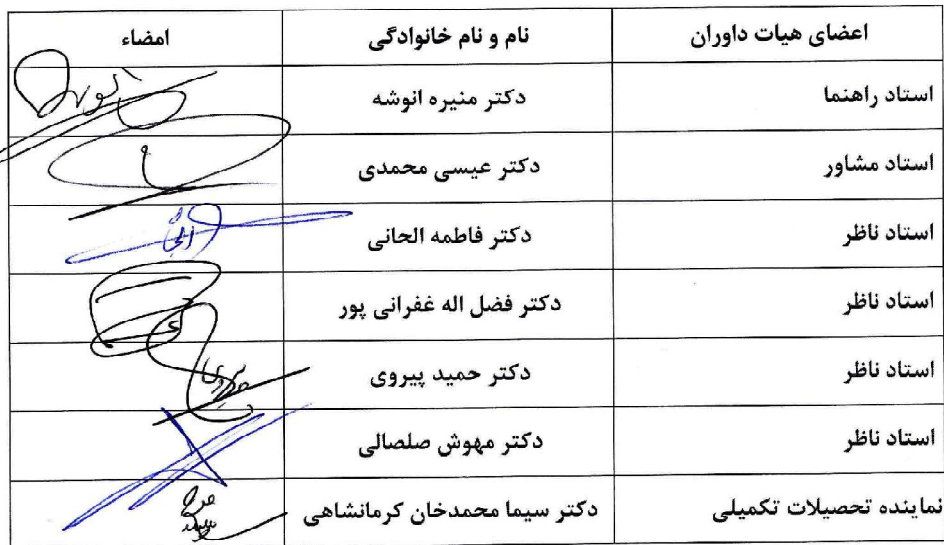 اعضای هیات داوران	نام و نام خانوادگی	امضاء
استاد راهنما	دکتر منیره انوشه
استاد مشاور	دکتر عیسی محمدی
استاد ناظر	دکتر فاطمه الحانی
استاد ناظر	دکتر فضل اله غفرانی پور
استاد ناظر	دکتر حمید پیروی
استاد ناظر	دکتر مهوش صلصالی
نماینده تحصیلات تکمیلی	دکتر سیما محمدخان کرمانشاهی